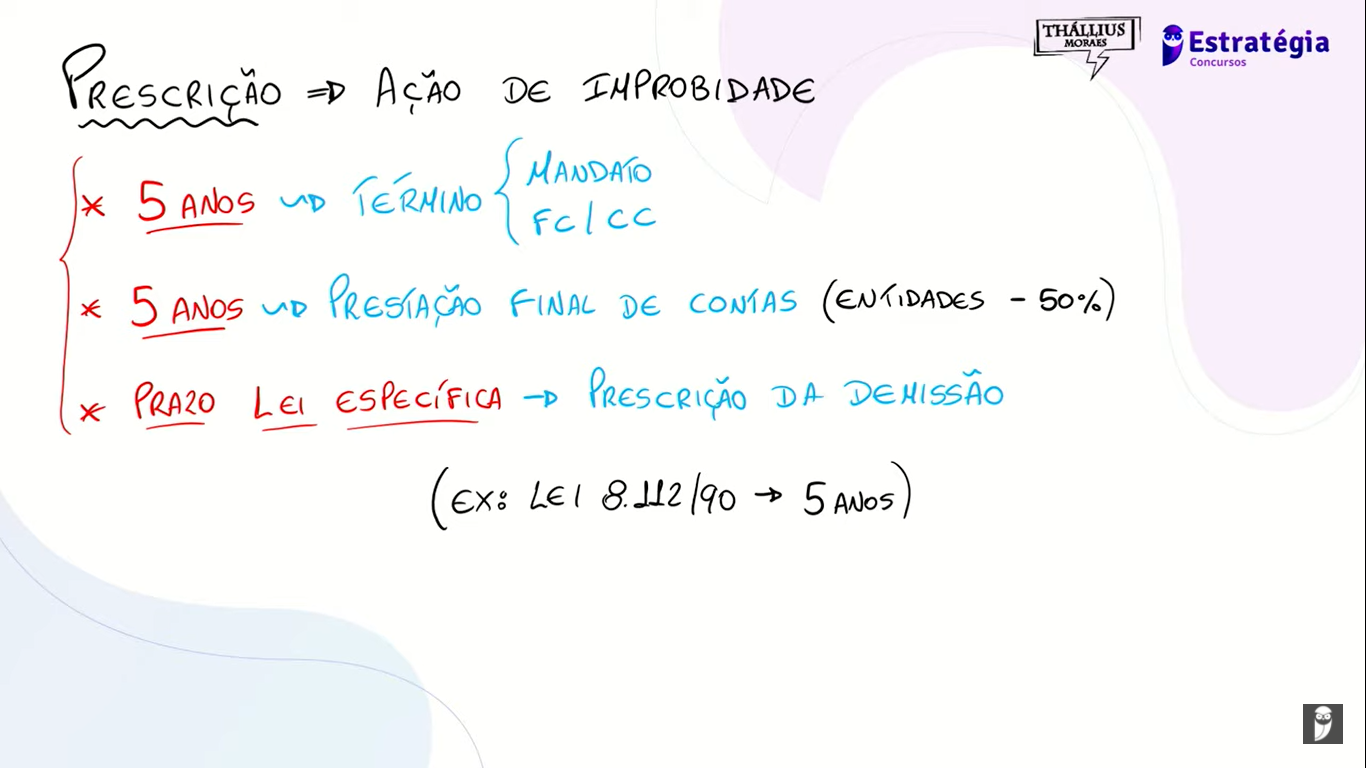 THÁLLIUS
MORAES
Estratégia
Concursos
PRESCRIÇÃO ⇒ AÇÃO DE IMPROBIDADE
* 5 ANOS → TÉRMINO { MANDATO
FC / CC
* 5 ANOS → PRESTAÇÃO FINAL DE CONTAS (ENTIDADES - 50%)
* PRAZO LEI ESPECÍFICA → PRESCRIÇÃO DA DEMISSÃO
(EX: LEI 8.112/90 → 5 ANOS)